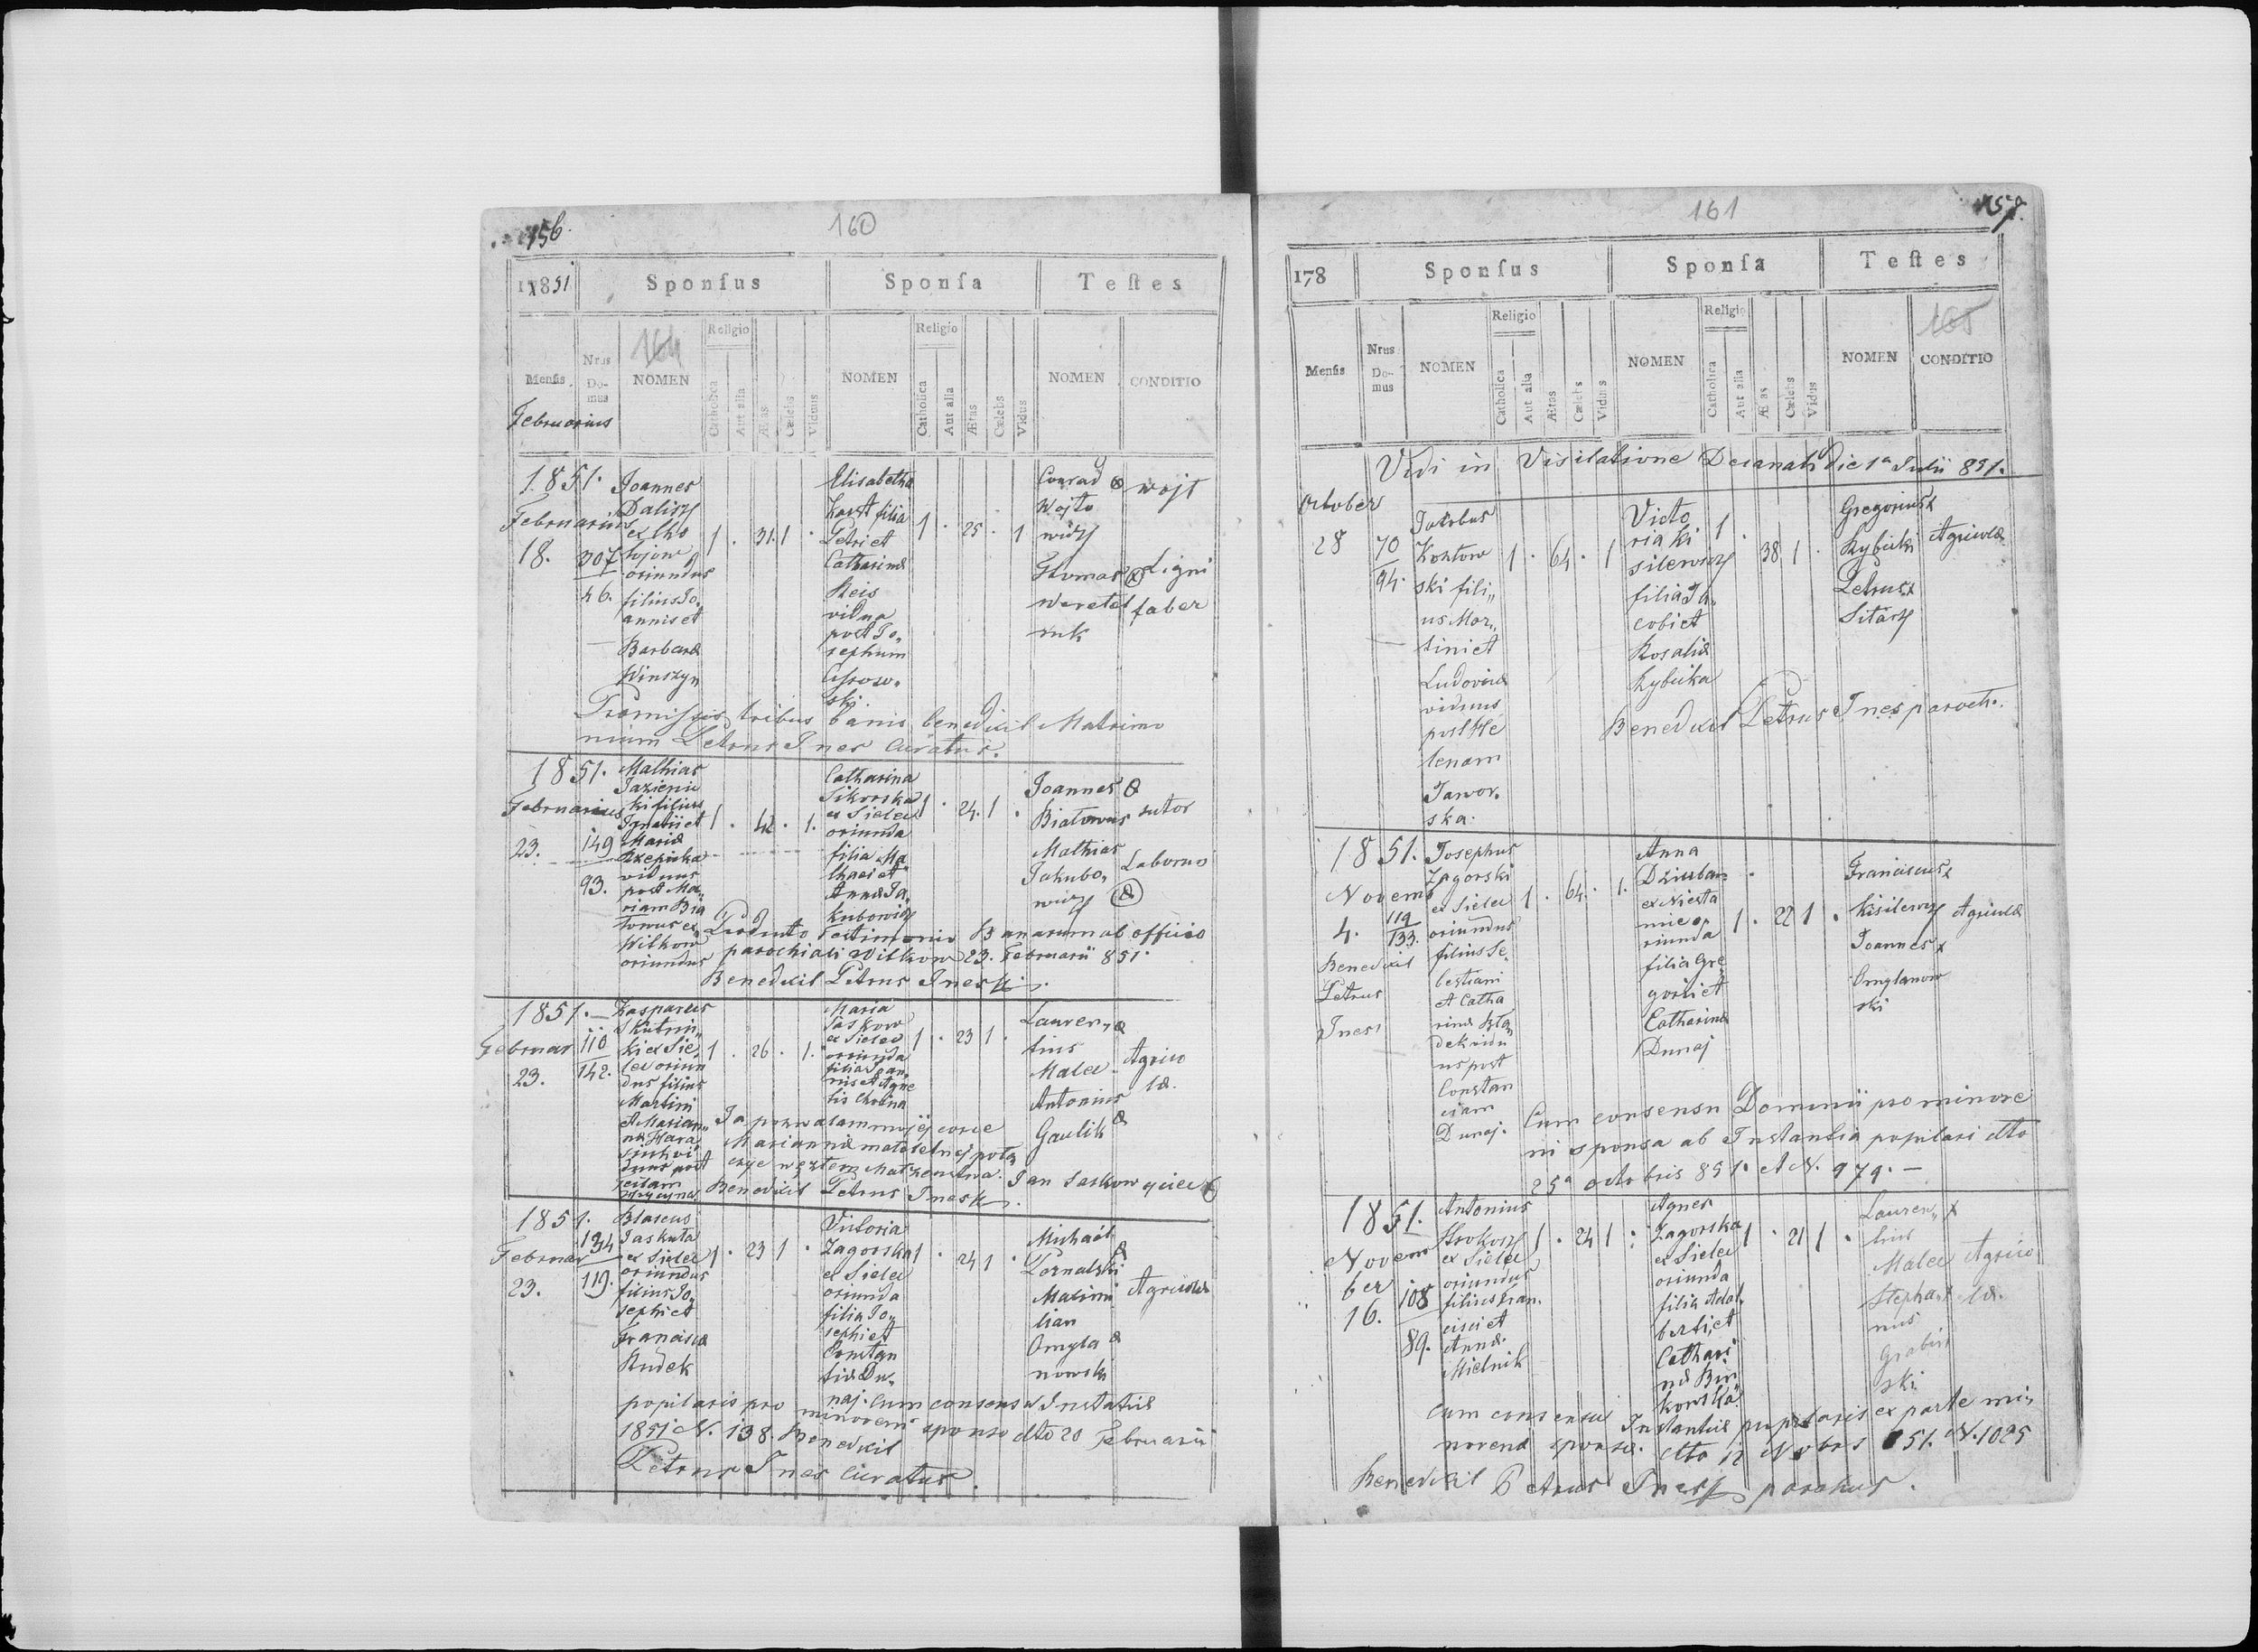 156.
160
17851
Sponsus
Sponsa
Testes
Mensis
Nrus Do-mus
164
NOMEN
Religio
Catholica
Aut alia
Ætas
Cælebs
Viduus
NOMEN
Religio
Catholica
Aut alia
Ætas
Cælebs
Vidus
NOMEN
CONDITIO
Februarius
1851.
Februarius
18.
307
46.
Joannes
Dalisz
ex
oriundus
filius Jo„
annis et
Barbara
Winszyn
1 . 31. 1 .
Elisabetha
Karst filia
Petri et
Catharina
Reis
vidua
post Jo„
sephum
ski.
1 . 25 . 1
Conrad
Wojto
wicz
Thomas
Weretel
nik
wojt
Ligni
faber
Premissis tribus banis benedixit Matrimo
nium Petrus Ines Curatus.
1851.
Februarius
23.
149
93.
Mathias
Jazienic
ki filius
Ignatii et
Maria
Rzepicka
viduus
post Ma„
riam Bia
towus ex
Witkow
oriundus
1 . 42 . 1.
Catharina
Sikorska
ex Sielec
oriunda
filia Ma
thaei et
Anna Ja„
kubowicz
1 . 24. 1 .
Joannes
Biatowus
Mathias
Jakubo„
wicz
sutor
Laborio
Producto Testimonio Banarum ab officio
parochiali Witkow 23. Februarii 851.
Benedixit Petrus Ines
1851. —
Februar
23.
110
142.
Kasparus
Skutnic„
ki ex Sie„
lec oriun
dus filius
Martini
et Marian„
na Hara
viduus post
1 . 26 . 1.
Maria
Saskow
ex Sielec
oriunda
filia Joan„
nis et Agne
tis
1 . 23 1 .
Lauren„
tius
Malec
Antonius
Gawlik
Agrico
la.
Ja pozwalam mojéj corce
Mariannie matoletnéj potą
czyc węztem Matzenstwa. Jan Saskow ojciec
Benedixit Petrus Ines
1851.
Februar
23.
134
119.
Blaseus
Jaskuta
ex Sielec
oriundus
filius Jo„
sephi et
Francisca
Rudek
1 . 23 1 .
Victoria
Zagorska
ex Sielec
oriunda
filia Jo„
sephi et
Constan
tia Du„
naj.
1 . 24 1 .
Michaël
Pornalski
Maximi
lian
Omyla
nowski
Agricola
cum consensu Instantia
popilaris pro minorem sponso dto 20 Februarii
1851 N. 138. Benedixit
Petrus Ines Curatus.
161
157.
178
Sponsus
Sponsa
Testes
Mensis
Nrus Do-mus
NOMEN
Religio
Catholica
Aut alia
Ætas
Cælebs
Viduus
NOMEN
Religio
Catholica
Aut alia
Ætas
Cælebs
Vidus
NOMEN
165
CONDITIO
Vidi in Visitatione Decanali die 1a Julii 851.
October
28
70
94.
Jacobus
Koztow
ski fili„
us Mar„
tini et
Ludovica
viduus
post He
lenam
Jawor„
ska.
1 . 64 . 1
Victo
ria Ki
silewicz
filia Ja„
cobi et
Rosalia
Rybicka
1 . 38 1 .
Gregorius
Rybicki
Petrus
Sitarz
Agricola
Benedixit Petrus Ines paroch.
1851.
Novemb
4.
119
133.
Benedixit
Petrus
Ines
Josephus
Zagorski
ex Sielec
oriundus
filius Se„
bestiani
et Catha
rina
vidu
us post
Constan
ciam
Dunaj.
1 . 64 . 1.
Anna
Dziuban
ex Niesta
nice o
riunda
filia Gre„
gorii et
Catharina
Dunaj
1 . 22 1 .
Franciscus
Kisilewicz
Joannes
Omylanow
ski
Agricola
Cum consensu Dominii pro minore
ni sponsa ab Instantia popilari dto
25a octobris 851. et N. 979. —
1851.
Novem
ber
16.
108
89.
Antonius
Skokosz
ex Sielec
oriundus
filius Fran„
cisci et
Anna
Mielnik
1 . 24 1 .
Agnes
Zagorska
ex Sielec
oriunda
filia Adal„
berti et
Cathari
na Bin
kowska
1 . 21 1 .
Lauren„
tius
Malec
Stepha
nus
Grabin
ski
Agrico
la.
Cum consensu Instantia pupilaris ex parte mi„
norena sponsa. dto 12 Nvbris 851. N. 1025
Benedixit Petrus Ines parohus.